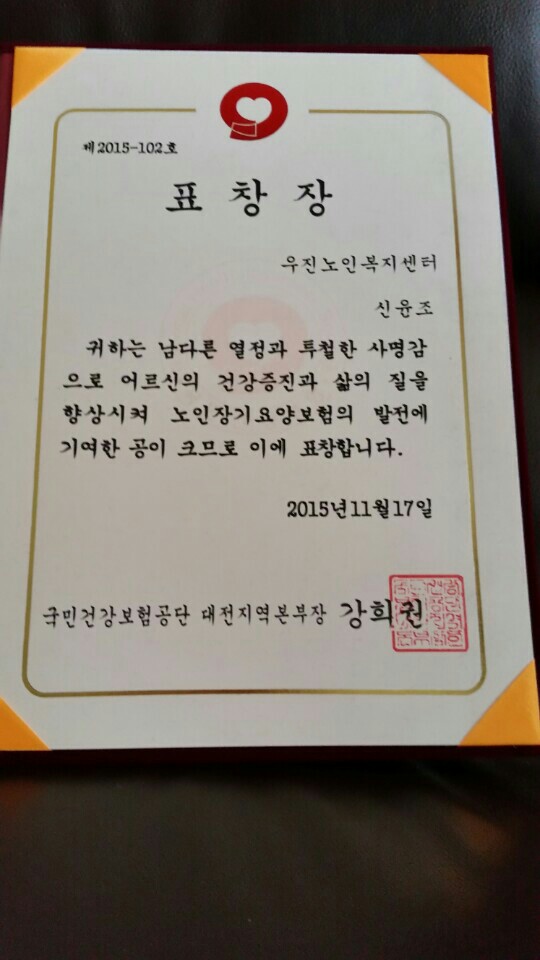 제2015-102호
표창장
우진노인복지센터
신윤조
귀하는 남다른 열정과 투철한 사명감
으로 어르신의 건강증진과 삶의 질을
향상시켜 노인장기요양보험의 발전에
기여한 공이 크므로 이에 표창합니다.
2015년11월17일
국민건강보험공단 대전지역본부장 강희권